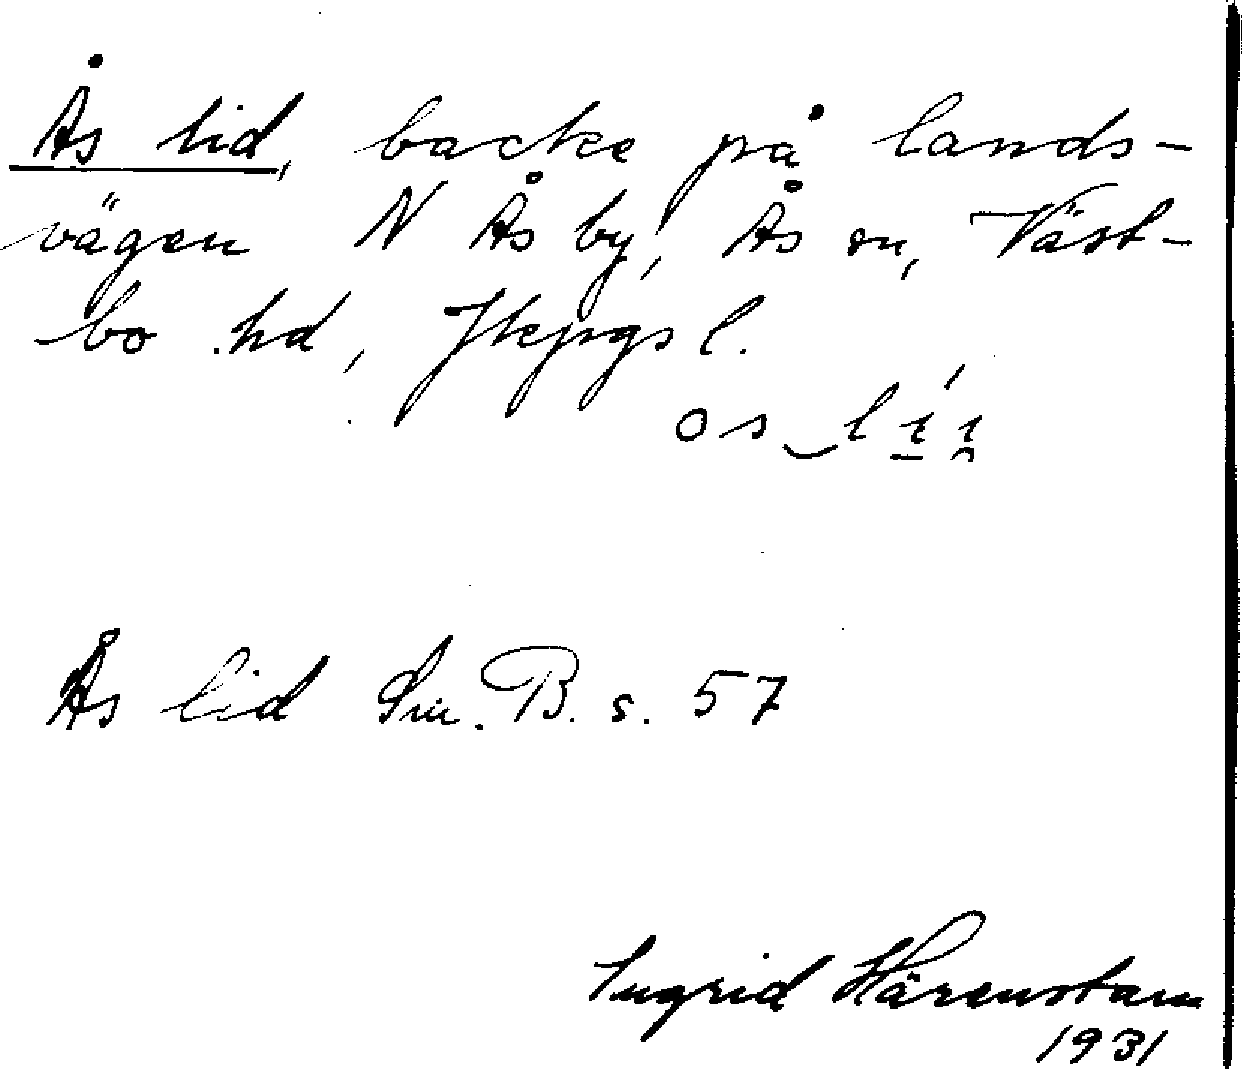 Ås lid, backe på lands-
vägen N Ås by, Ås sn, Väst-
bo hd, Jkpgs l.
os‿lí̱i̯
Ås lid Sm. B. s. 57
Ingrid Härenstam
1931